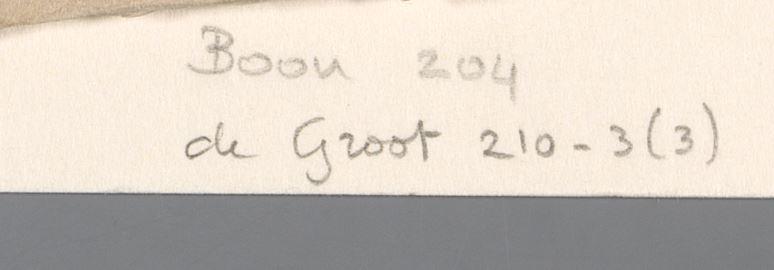 Boon 204
de Groot 210-3(3)